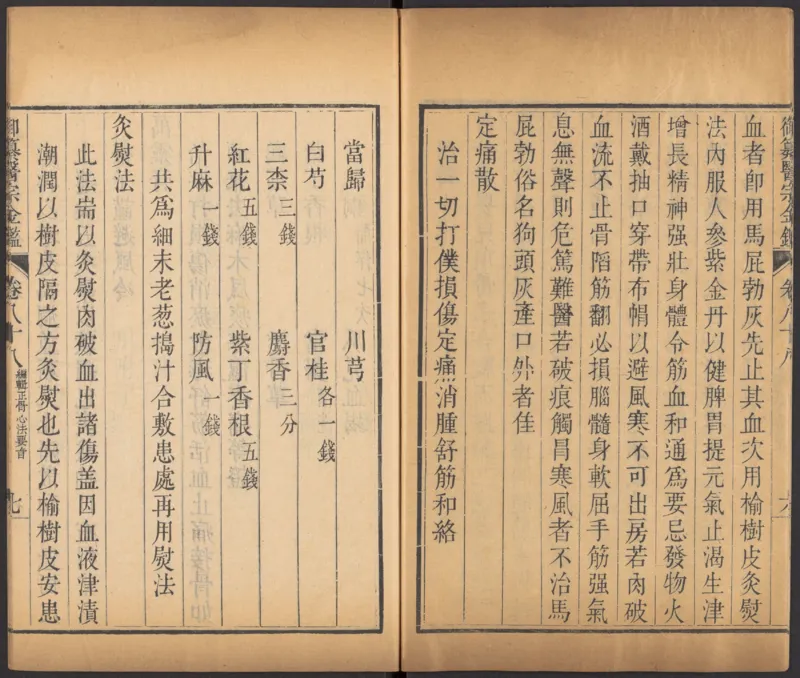 血者卽用馬屁勃灰先止其血次用榆樹皮灸熨
法內服人參紫金丹以健脾胃提元氣止渴生津
增長精神强壯身體令筋血和通爲要忌發物火
酒戴抽口穿帶布帽以避風寒不可出房若肉破
血流不止骨䧟筋翻必損腦髓身軟屈手筋强氣
息無聲則危篤難醫若破痕觸冒寒風者不治馬
屁勃俗名狗頭灰產口外者佳
定痛散
治一切打僕損傷定痛消腫舒筋和絡
當歸 川芎
白芍 官桂各一錢
三柰三錢 麝香三分
紅花五錢 紫丁香根五錢
升麻一錢 防風一錢
共爲細末老葱搗汁合敷患處再用熨法
灸熨法
此法耑以灸熨肉破血出諸傷盖因血液津漬
潮潤以樹皮隔之方灸熨也先以榆樹皮安患
御纂醫宗金鑑 卷八十八 編輯正骨心法要旨 九